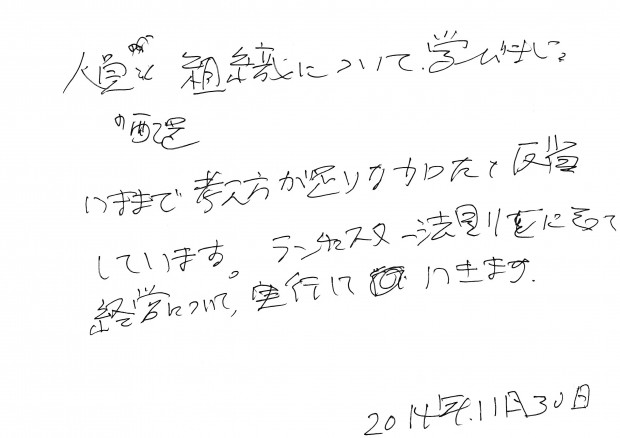 人員や組織について学びました。
の配置
いままで考え方が足りなかったと反省
しています。ランチェスター法則を元に
経営について、実行していきます。
2014年11月30日